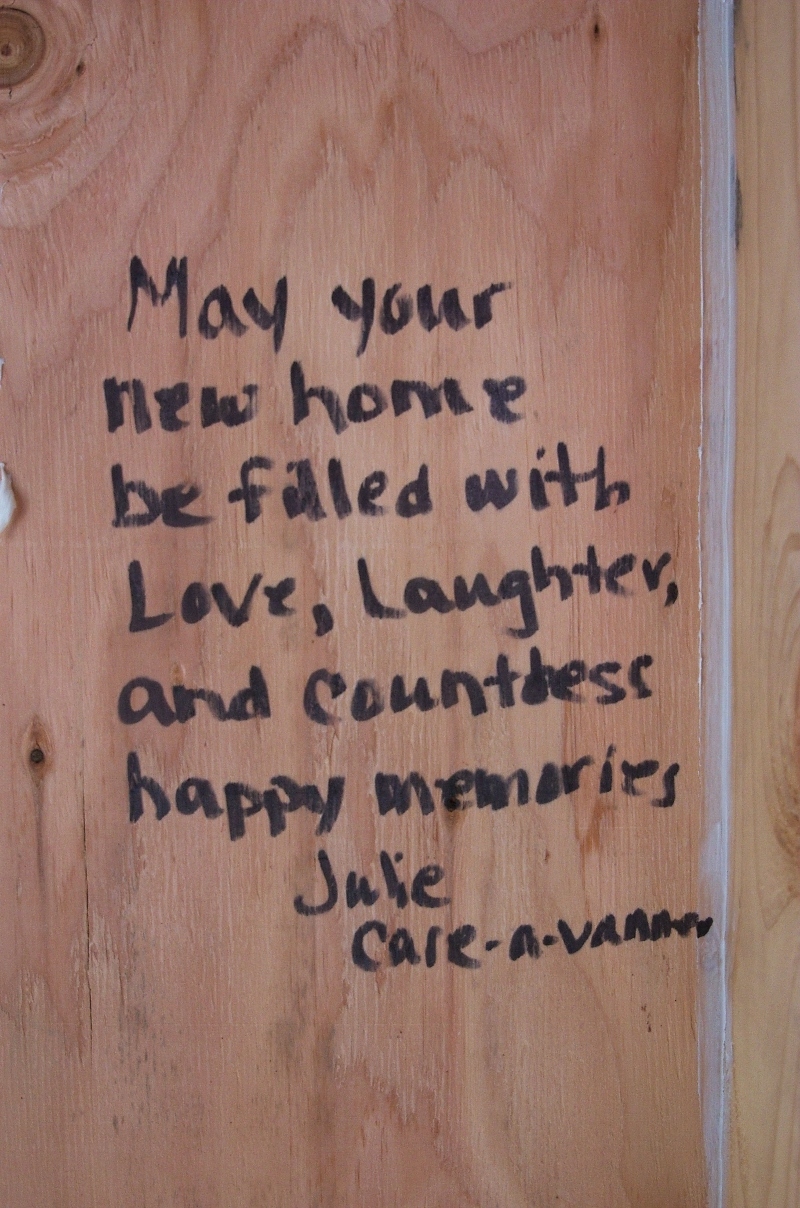 May your
new home
be filled with
Love, Laughter,
and countless
happy memories
Julie
Care-a-vanner